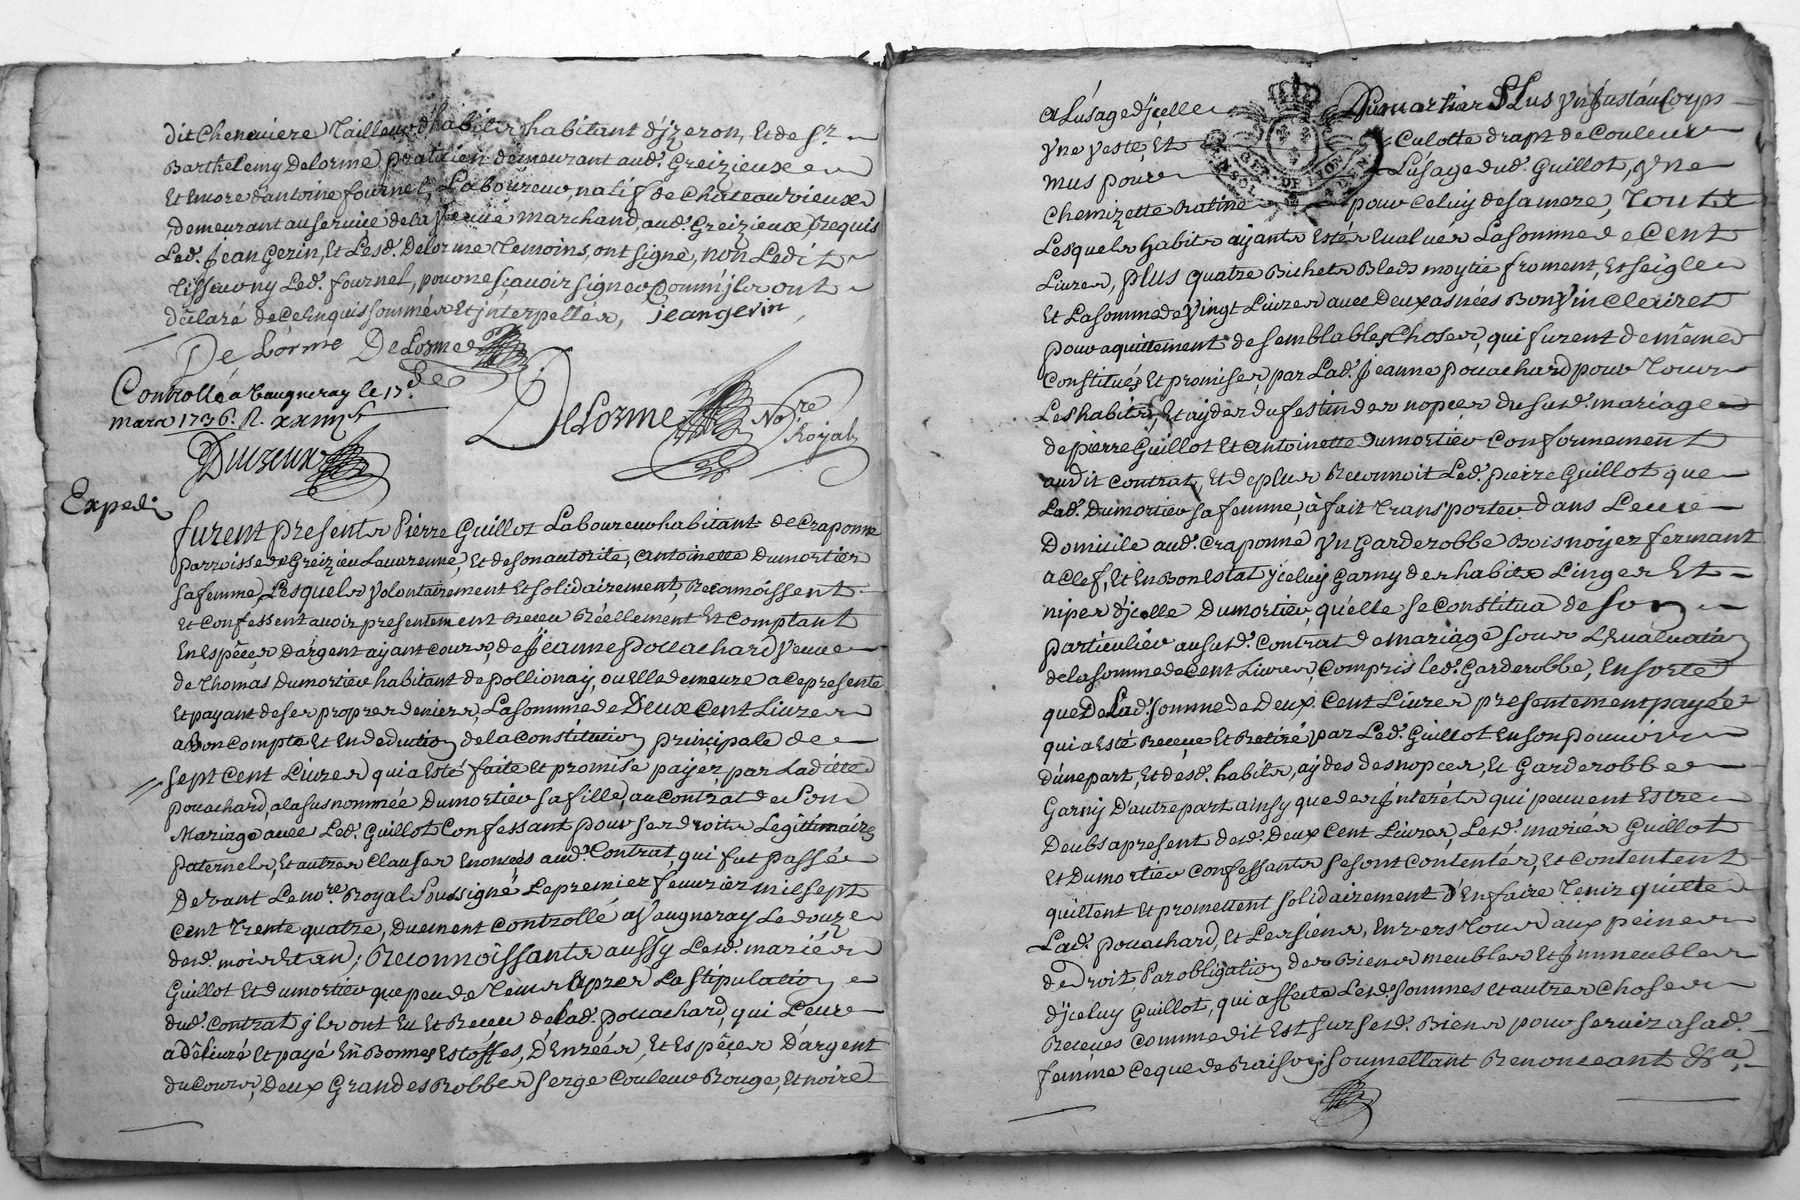 dit Cheneviere Tailleur d'habits habitant d'jzeron, Et de Sr.
Barthelemy Delorme praticien demeurant aud. Greizieux
Et Encore d'antoine fournel, Laboureur, natif de Chateauvieux
demeurant au service de la veuve marchand, aud. Greizieux, Requis
Led. Jean Gerin, Et Lesd. Delorme Temoins, ont signé, non Ledit
Tisseur ny Led. fournel, pour ne sçavoir signer Comm'jls ont
déclaré de ce Enquis sommés Et jnterpellés, jean gerin
De Lorme Delorme
Controllé a Vaugneray le 17e.
mars 1736. R. xxiiijs
Delorme Nore
Royal
Exped.
furent presents Pierre Guillot Laboureur habitant de Craponne
Parroisse de Greizieu Lavarenne, Et de son autorité, antoinette Dumortier
sa femme, Lesquels volontairement Et solidairement, Reconnoissent
Et Confessent avoir presentement Receu Réellement Et comptant
En Espêces d'argent ayant cours, de Jeanne Pouachard veuve
de Thomas Dumortier habitant de Pollionay, ou Elle demeure a ce presente
Et payant de ses propres deniers, La somme de Deux Cent Livres
a Bon Compte Et En deduction de la Constitution principale de
sept Cent Livres qui a Esté faite Et promise payer, par Ladite
Pouachard, a la susnommée Dumortier sa fille, au Contrat de Son
Mariage avec Led. Guillot Confessant pour ses droits Legitimaires
paternels, Et autres Clauses Enoncés aud. Contrat, qui fut passé
Devant Le nore. Royal Soussigné Le premier fevrier mil sept
Cent Trente quatre, Duement Controllé a Vaugneray Le douze
desd. mois Et an; Reconnoissants aussy Lesd. mariés
Guillot Et dumortier que peu de Tems Apres La stipulation
dud. Contrat jls ont Eu Et Receu de Lad. Pouachard, qui Leur
a délivré Et payé En Bonnes Estoffes, Denrées, Et Espêces D'argent
du Cours, Deux Grandes Robbes serge Couleur Rouge, Et noire
a L'usage d'jcelle Dumortier Plus yn Justaucorps
yne veste, Et Culotte drapt de Couleur
mus pour L'usage dud. Guillot, yne
Chemizette Ratine pour Celuy de sa mere, Touts
Lesquels habits ayants Estés Evalués La somme de Cent
Livres, Plus quatre Bichets Bleds moytié froment, Et seigle
Et La somme de Vingt Livres avec Deux asnées Bon Vin Cleiret
pour aquittement de semblables Choses, qui furent de même
Constitués Et promises, par Lad. Jeanne Pouachard pour Tous
Les habits, Et aydes du festin des nopces du susd. mariage
de pierre Guillot Et antoinette Dumortier Conformement
audit Contrat, Et de plus Reconnoit Led. pierre Guillot que
Lad. Dumortier sa femme, à fait Transporter dans Leur
Domicile aud. Craponne yn Garderobbe Bois noyer fermant
a Clef, Et En Bon Estat jceluy Garny des habits Linges Et
nipes d'jcelle Dumortier, qu'elle se Constitua de son
particulier au susd. Contrat de mariage sous L'Evaluation
de la somme de Cent Livres, Compris led. Garderobbe, En sorte
que De Lad. somme de Deux Cent Livres presentement payée
qui a Esté Receue Et Retiré par Led. Guillot En son pouvoir
d'une part, Et desd. habits, aydes des nopces, Et Garderobbe
Garny D'autre part ainsy que des Interêts qui peuvent Estre
Deubs apresent desd. Deux Cent Livres, Lesd. mariés Guillot
Et Dumortier Confessants se sont Contentés, Et Contentent
quittent Et promettent solidairement D'En faire Tenir quitte
Lad. Pouachard, Et Les siens, Envers Tous aux peines
de Droit Par obligation des Biens meubles Et Jmmeubles
d'jceluy Guillot, qui affecte Lesd. sommes Et autres Choses
Receues Comme dit Est sur sesd. Biens pour servir a sad.
femme Ce que de Raison soumettant Renonceant &a.